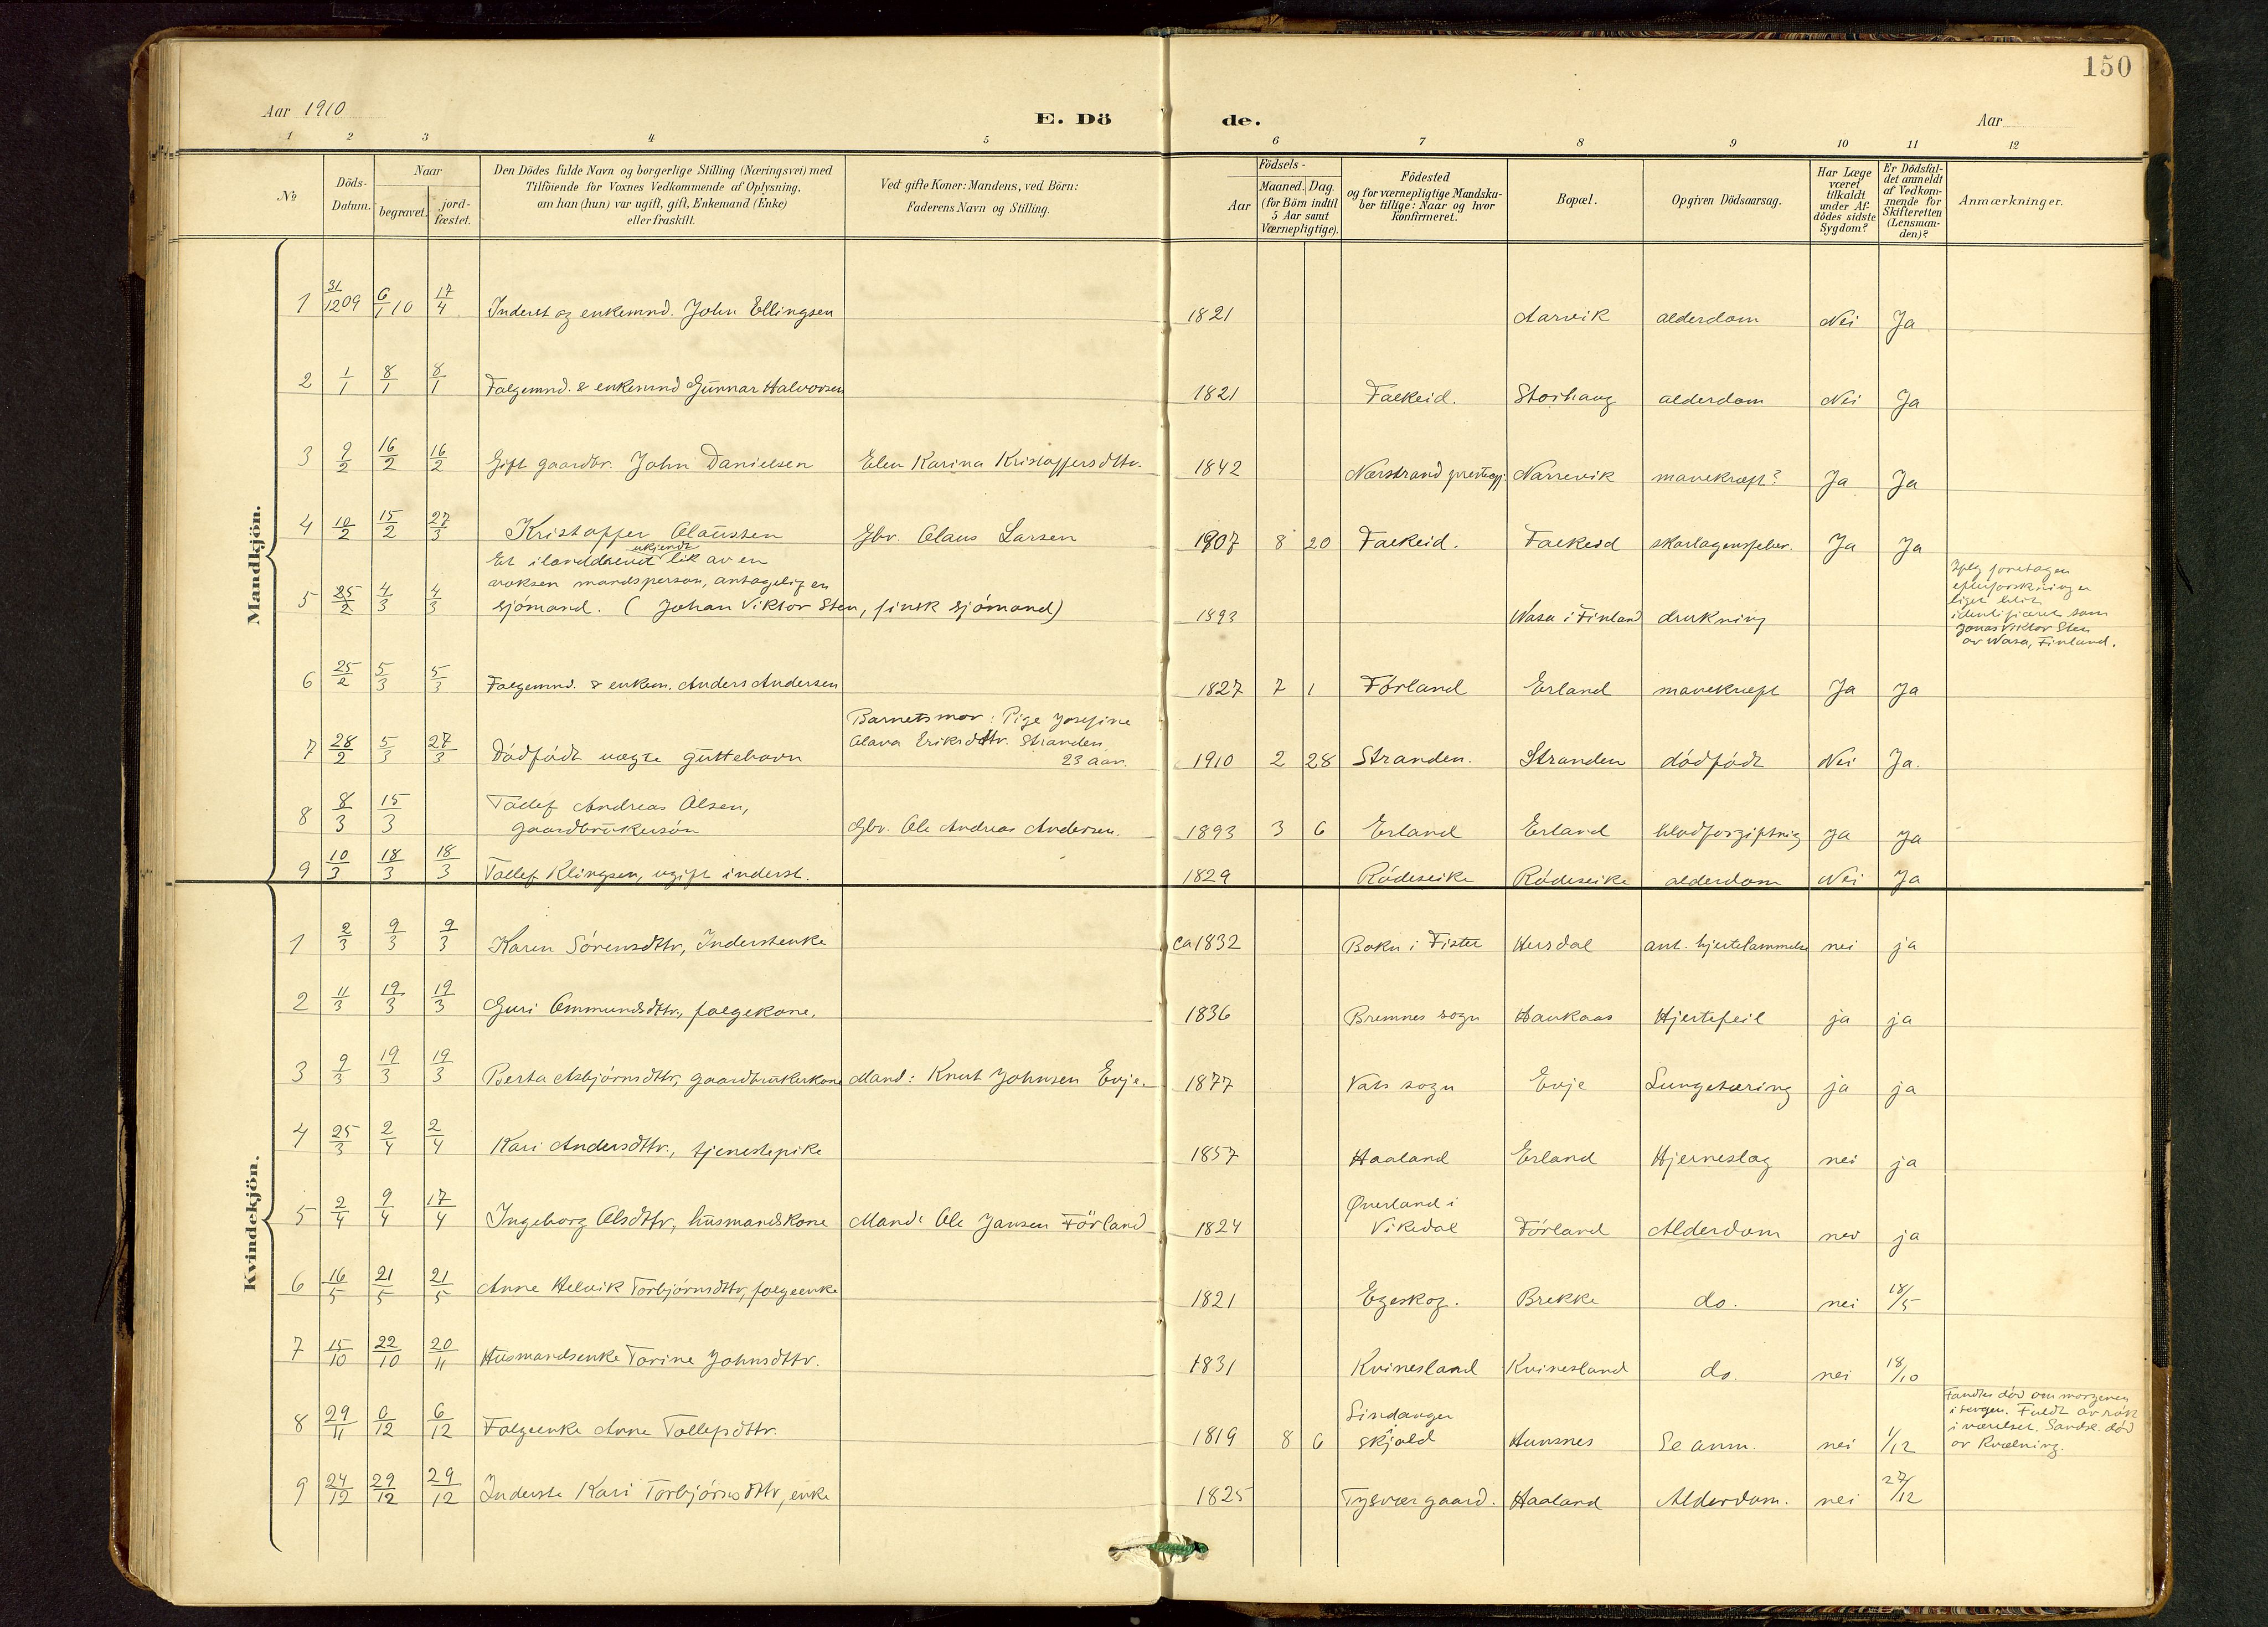 150
Aar 1910 E. Dö de. Aar
1 2 3 4 5 6 7 8 9 10 11 12
№
Döds-Datum.
Naar
begravet.
jord-fæstet.
Den Dödes fulde Navn og borgerlige Stilling (Næringsvei) med
Tilföiende for Voxnes Vedkommende af Oplysning,
om han (hun) var ugift, gift, Enkemand (Enke)
eller fraskilt.
Ved gifte Koner: Mandens, ved Börn:
Faderens Navn og Stilling.
Födsels-
Aar
Maaned. Dag.
(for Börn indtil
5 Aar samt
Værnepligtige).
Födested
og for værnepligtige Mandska-
ber tillige: Naar og hvor
Konfirmeret.
Bopæl.
Opgiven Dödsaarsag.
Har Læge
været
tilkaldt
under Af-
dödes sidste
Sygdom?
Er Dödsfal-
det anmeldt
af Vedkom-
mende for
Skifteretten
(Lensman-
den)?
Anmærkninger.
Mandkjön.
1 31/12 09 6/1 10 17/4 Inderst og enkemnd. John Ellingsen 1821 Aarvik alderdom Nei Ja
2 1/1 8/1 8/1 Følgemnd. & enkemnd Gunnar Halvorsen 1821 Falkeid. Storhaug alderdom Nei Ja
3 9/2 16/2 16/2 Gift gaardbr. John Danielsen Elen Karina Kristoffersdttr. 1842 Nærstrand prestegj. Narrevik mavekræft? Ja Ja
4 10/2 15/2 27/3 Kristoffer Olaussen Gbr. Olaus Larsen 1907 8 20 Falkeid. Falkeid skarlagensfeber. Ja Ja
5 25/2 4/3 4/3 Et ilanddrevet ukjendt lik av en
voksen mandsperson, antagelig en
sjömand. (Johan Viktor Sten, finsk sjömand) 1893 Wasa i Finland drukning
Iflg foretagen
efterforskninger
liget blit
identificeret som
Jonas Viktor Sten
av Wasa, Finland.
6 25/2 5/3 5/3 Følgemnd. & enkem. Anders Andersen 1827 7 1 Førland Erland mavekræft Ja Ja
7 28/2 5/3 27/3 Dödfödt uægte guttebarn Barnets mor: Pige Josefine
Olava Eriksdttr. Stranden
23 aar. 1910 2 28 Stranden. Stranden dödfödt Nei Ja.
8 8/3 15/3 Tollef Andreas Olsen,
gaardbrukersön Gbr. Ole Andreas Andersen. 1893 3 6 Erland Erland blodforgiftnig ja ja
9 10/3 18/3 18/3 Tollef Klingsen, ugift inderst. 1829 Rödseike Rödseike alderdom Nei Ja
Kvindekjön.
1 2/3 9/3 9/3 Karen Sörensdttr, Inderstenke ca 1832 Bokn i Fister Hersdal ant. hjertelammelse nei ja
2 11/3 19/3 19/3 Guri Ommundsdttr, følgekone. 1836 Bremnes sogn Haukaas Hjertefeil ja ja
3 9/3 19/3 19/3 Berta Asbjörnsdttr, gaardbrukerkone Mand: Knut Johnsen Evje. 1877 Vats sogn Evje Lungetæring ja ja
4 25/3 2/4 2/4 Kari Andersdttr., tjenestepike 1857 Haaland Erland Hjerneslag nei ja
5 2/4 9/4 17/4 Ingeborg Olsdttr, husmandskone Mand: Ole Jansen Förland 1824 Øverland i
Vikedal Förland Alderdom nei ja
6 16/5 21/5 21/5 Anne Helvik Torbjörnsdttr, følgeenke 1821 Egeskog. Brekke do. nei 18/5
7 15/10 22/10 20/11 Husmandsenke Torine Johnsdttr. 1831 Kvinesland Kvinesland do. nei 18/10
8 29/11 6/12 6/12 Følgeenke Anne Tollefsdttr. 1819 8 6 Sindanger
Skjold Hunsnes Se anm. nei 1/12
Fandtes död om morgenen
i sengen. Fuldt av rök
i værelset. Sandsl. död
av kvælning.
9 24/12 29/12 29/12 Inderste Kari Torbjörnsdttr, enke 1825 Tysvær gaard. Haaland Alderdom. nei 27/12